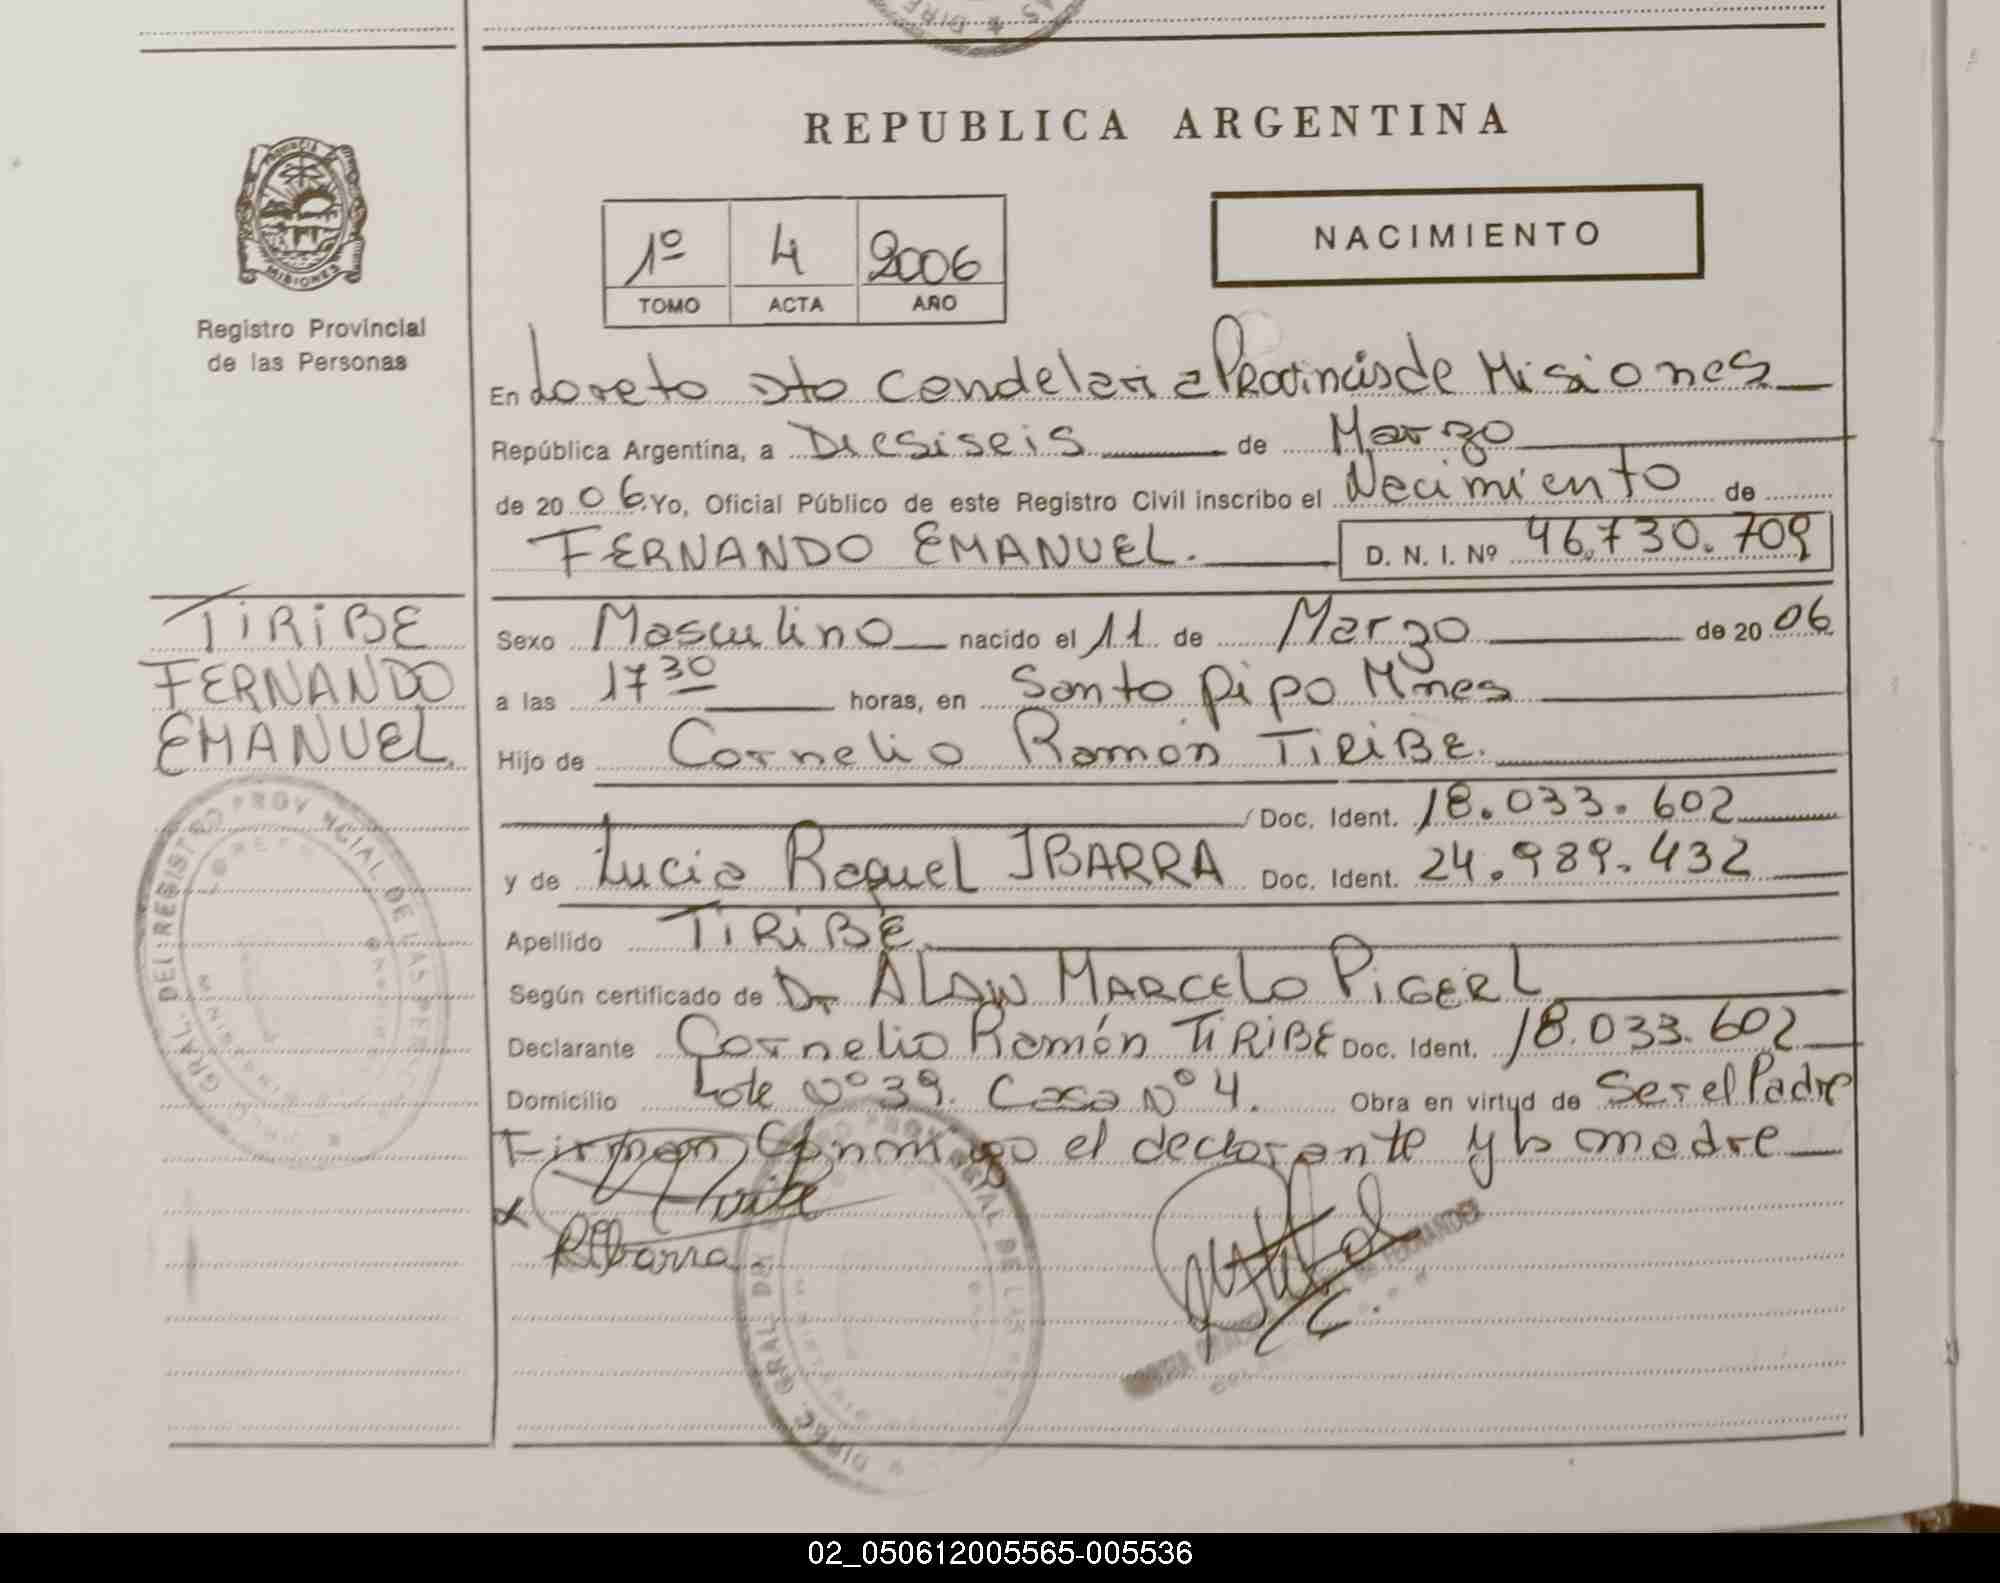 REPUBLICA ARGENTINA
PROVINCIA DE
MISIONES
Registro Provincial
de las Personas
1º 4 2006
TOMO ACTA AÑO
NACIMIENTO
En Loreto Dto Candelaria Provincia de Misiones
República Argentina, a Diesiseis de Marzo
de 20 06. Yo, Oficial Público de este Registro Civil inscribo el Nacimiento de
FERNANDO EMANUEL. D. N. I. Nº 46.730.709
TIRIBE
FERNANDO
EMANUEL.
Sexo Masculino nacido el 11 de Marzo de 20 06
a las 17 30 horas, en Santo Pipo Mnes
Hijo de Cornelio Ramón TIRIBE.
Doc. Ident. 18.033.602
y de Lucia Raquel IBARRA Doc. Ident. 24.989.432
Apellido TIRIBE
Según certificado de Dr ALAN MARCELO PIGERL
Declarante Cornelio Ramón TIRIBE Doc. Ident. 18.033.602
Domicilio Lote Nº 39. Casa Nº 4. Obra en virtud de Ser el Padre
Firman Conmigo el declarante y la madre
RIbarra
GRAL. DEL REGISTRO PROVINCIAL DE LAS PER
DIREC. GRAL. DEL
CIAL DE LAS
FERNANDEZ
02_050612005565-005536